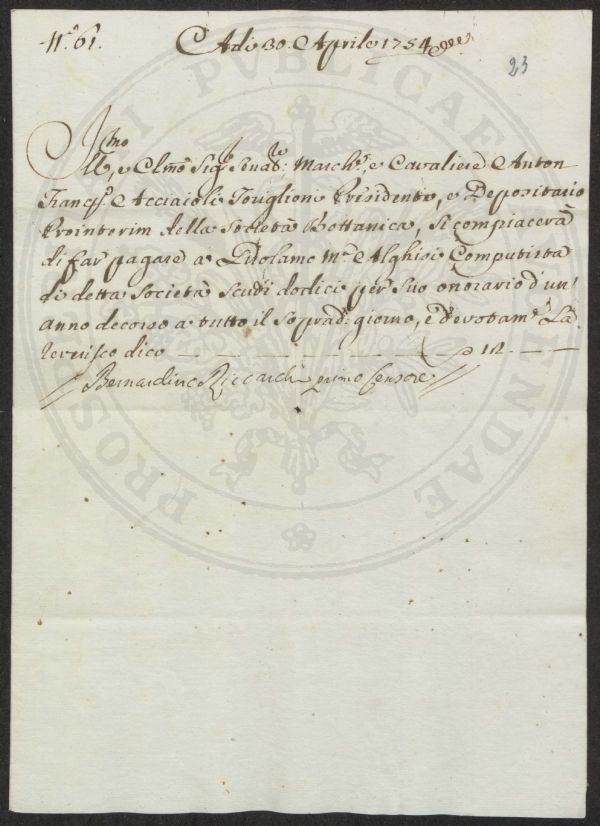 N.° 61.
Adi 30. Aprile 1754
23
Ill.mo e Clmo Sig.e Senat.e March.e, e Cavaliere Anton
Franc.o Acciaioli Toriglioni Presidente, e Depositario
Prointerim della Società Bottanica, si compiacerà
di far pagare a Girolamo M.a Alghisi Computista
di detta Società scudi dodici per suo onorario d'un
anno decorso a tutto il soprad.o giorno, e devotam.e La
reverisco dico 12
Bernardino Riccardi primo Censore
PROSPERITATI PVBLICAE AVGENDAE